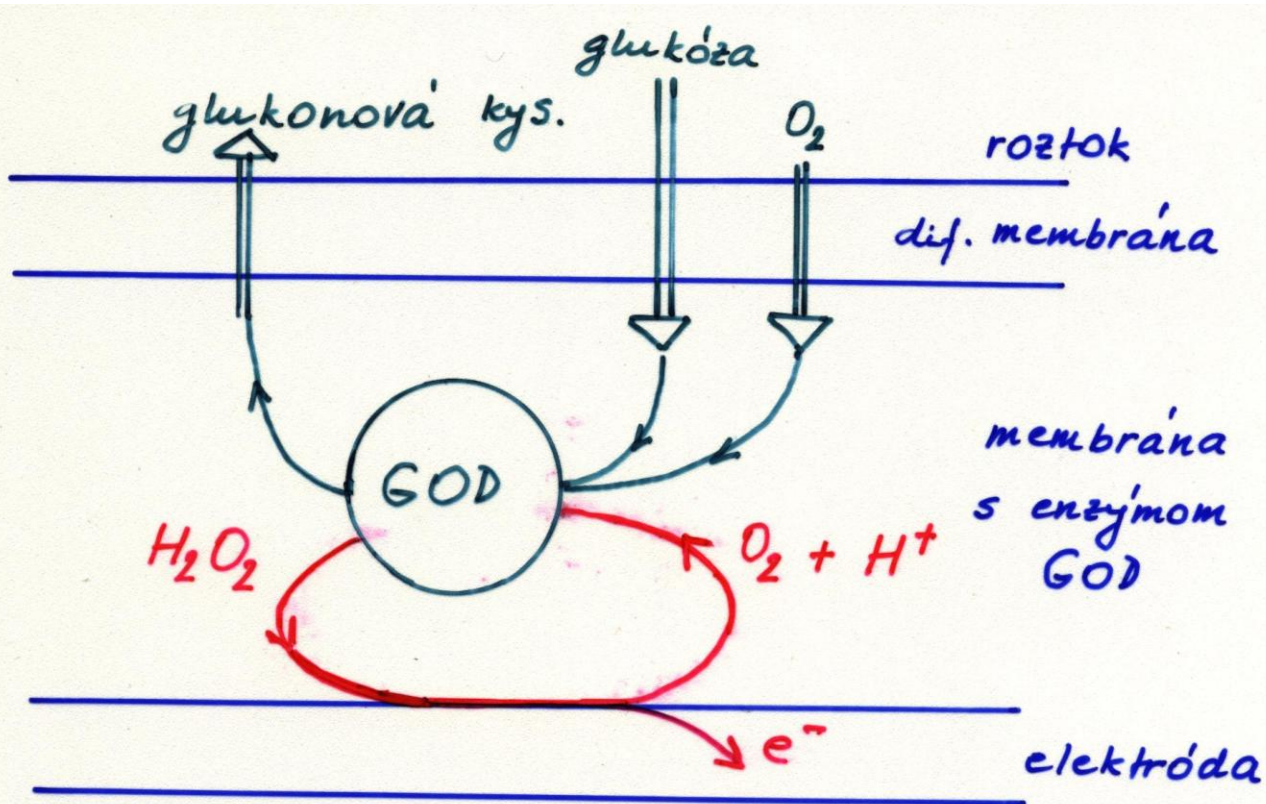 glukóza
glukonová kys.
O₂
roztok
dif. membrána
GOD
membrána
s enzýmom
GOD
H₂O₂
O₂ + H⁺
e⁻
elektróda